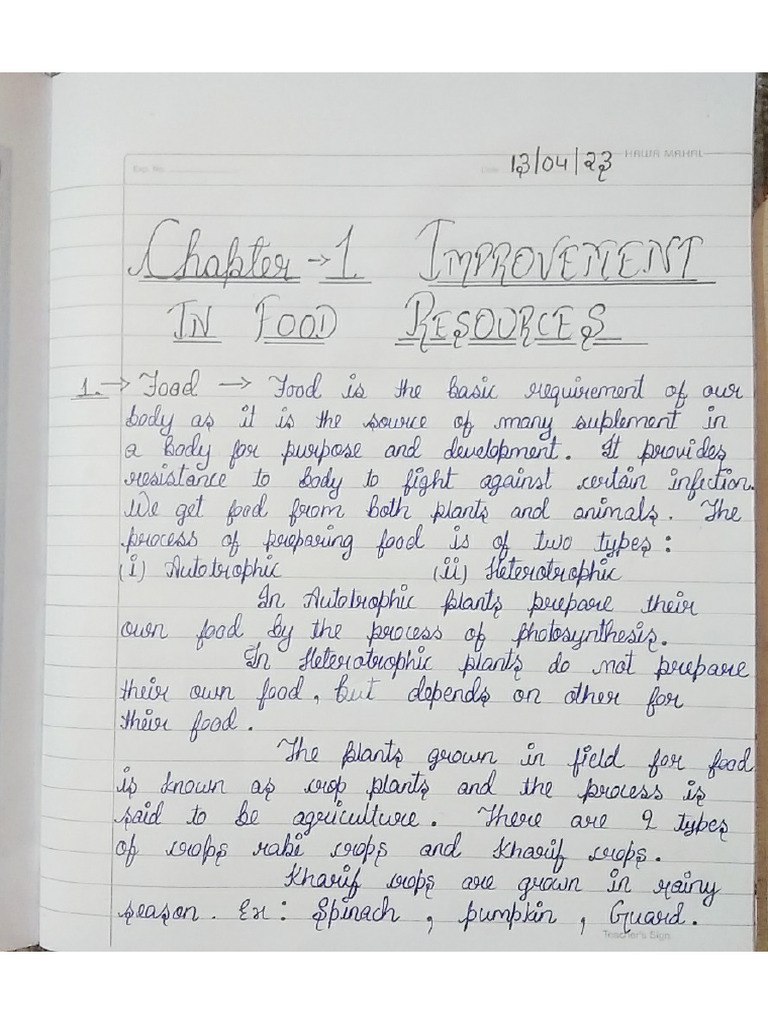 HAWA MAHAL
Exp. No.
Date 13/04/23
Chapter → 1 IMPROVEMENT
IN FOOD RESOURCES
1. → Food → Food is the basic requirement of our
body as it is the source of many suplement in
a body for purpose and development. It provides
resistance to body to fight against certain infection.
We get food from both plants and animals. The
process of preparing food is of two types :
(i) Autotrophic (ii) Heterotrophic
In Autotrophic plants prepare their
own food by the process of photosynthesis.
In Heterotrophic plants do not prepare
their own food, but depends on other for
their food.
The plants grown in field for food
is known as crop plants and the process is
said to be agriculture. There are 2 types
of crops rabi crops and Kharif crops.
Kharif crops are grown in rainy
season. Ex : Spinach, pumpkin, Guard.
Teacher's Sign